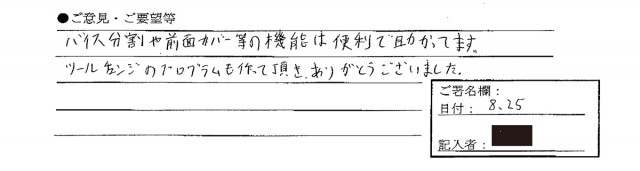 ●ご意見・ご要望等
バイス分割や前面カバー等の機能は便利で助かってます。
ツールチェンジのプログラムも作って頂き、ありがとうございました。
ご署名欄:
日付: 8.25
記入者: